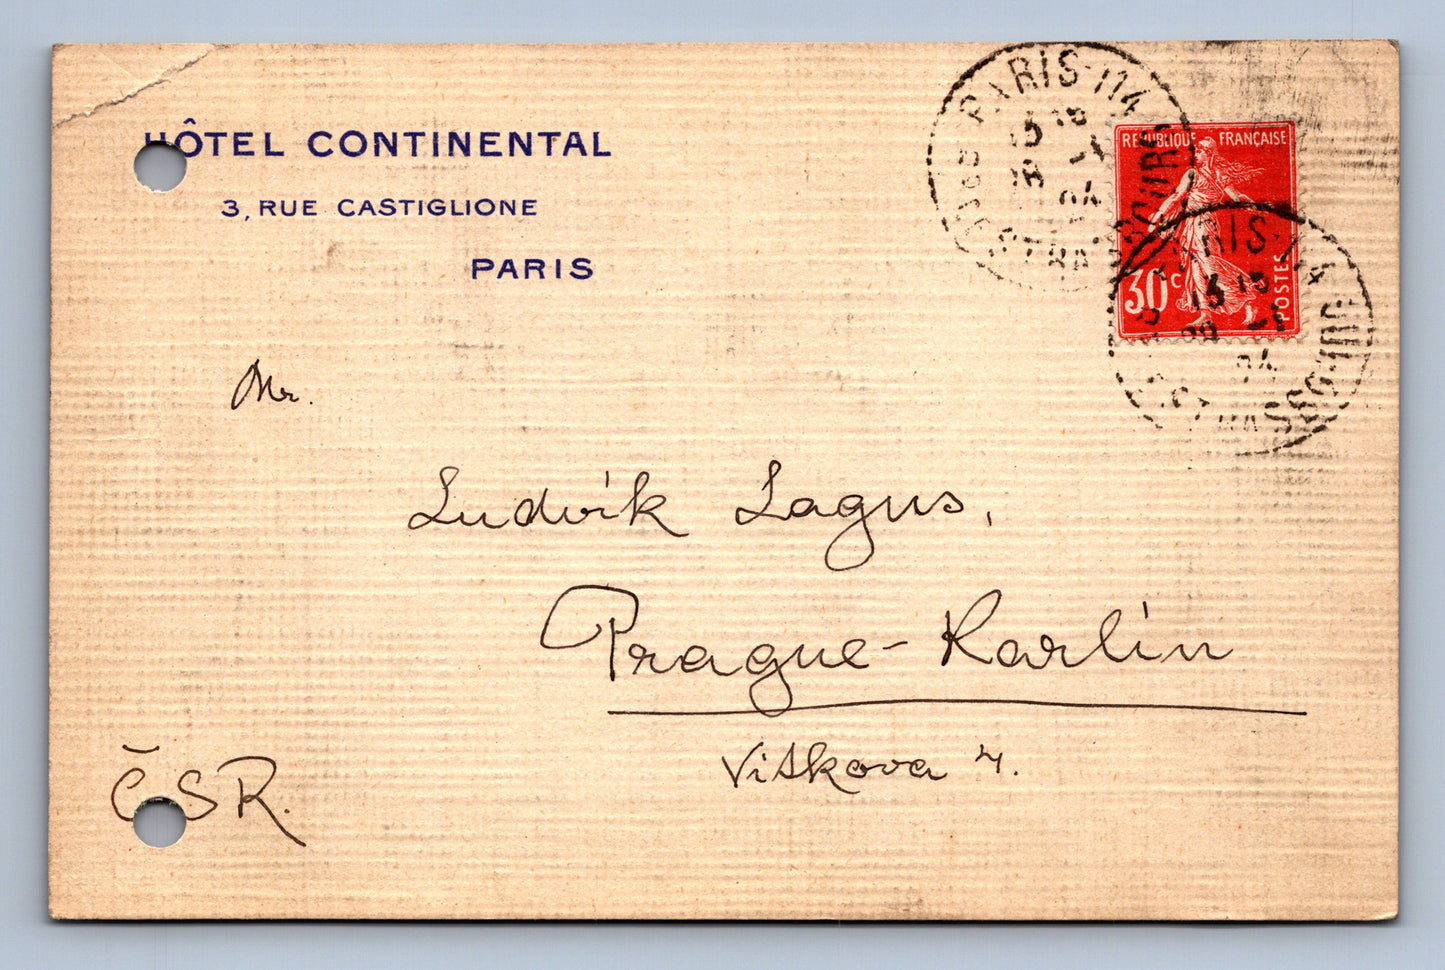 HÔTEL CONTINENTAL
3, RUE CASTIGLIONE
PARIS
PARIS·114
13 15
28 -1
24
RÉPUBLIQUE FRANÇAISE
30c
POSTES
PARIS·114
13 15
-1
24
Mr.
Ludvík Lagus,
Prague-Karlín
Vitkova 4.
ČSR.